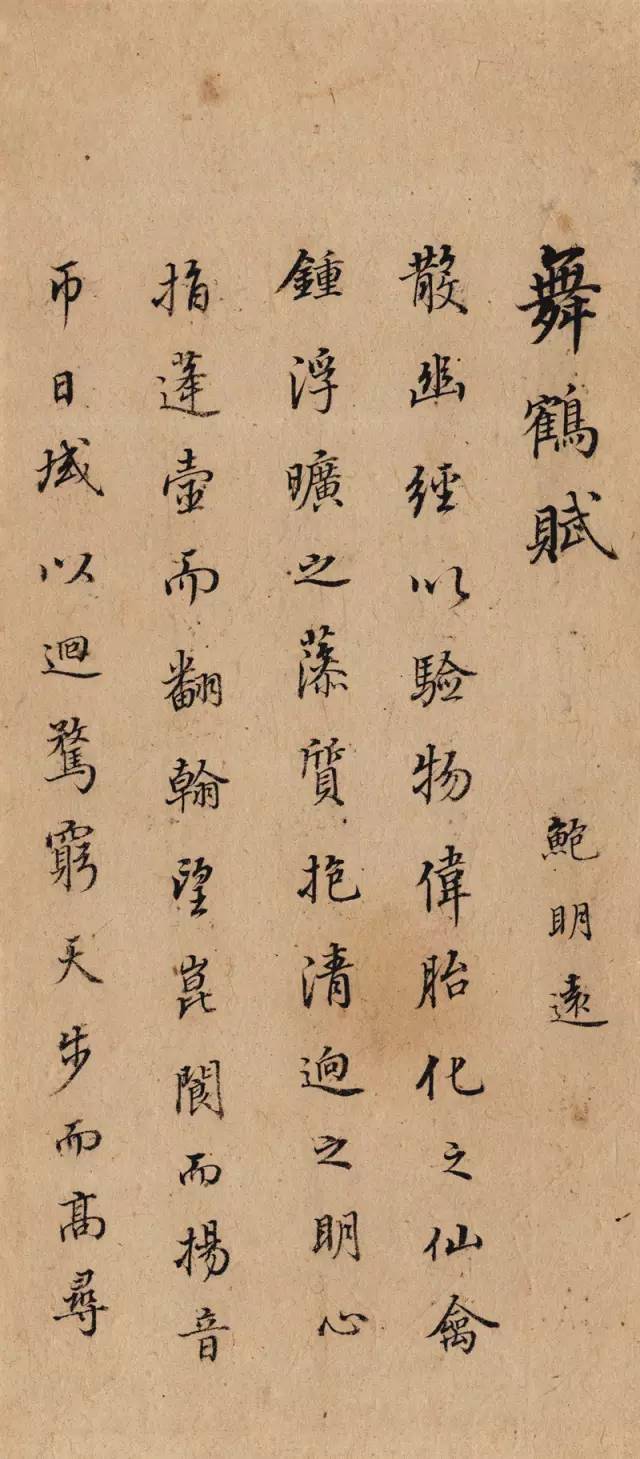 舞鶴賦
鮑明遠
散幽經以驗物偉胎化之仙禽
鍾浮曠之藻質抱清迥之明心
指蓬壺而翻翰望崑閬而揚音
帀日域以迴騖窮天步而高尋